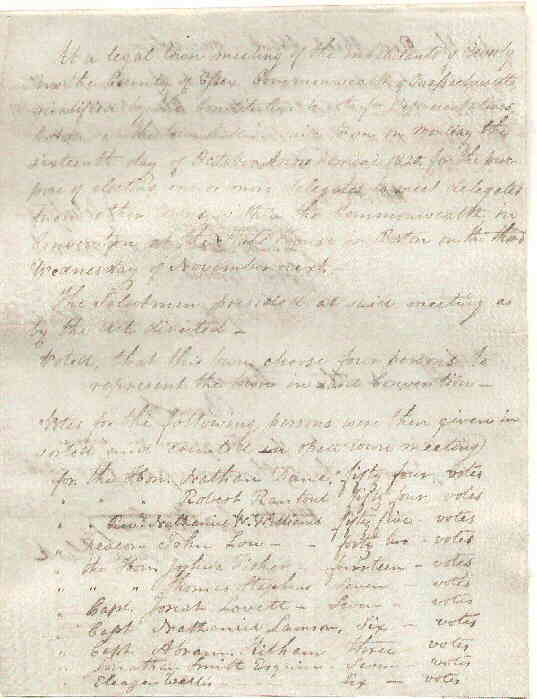 At a legal town meeting of the inhabitants of Beverly
in the County of Essex Commonwealth of Massachusetts
qualified by the Constitution to vote for Representatives,
holden at the in said Town on Monday the
sixteenth day of October Anno Domini 1820, for the pur-
pose of electing one or more delegates to meet delegates
from other towns within the Commonwealth in
Convention at the State House in Boston on the third
Wednesday of November next.
The Selectmen presided at said meeting as
by the Act directed -
Voted, that this town choose four persons to
represent the town in said Convention -
Votes for the following persons were then given in
sorted and counted in open town meeting
for the Hon. Nathan Dane, fifty four votes
" " " Robert Rantoul fifty four votes
" " Rev. Nathaniel W. Williams fifty five - votes
" Deacon John Low - - forty two - votes
" the Hon. Joshua Fisher - nineteen - votes
" " " Thomas Stephens seven - votes
" Capt. Josiah Lovett - Seven - votes
" Capt Nathaniel Lamson, Six - votes
" Capt Abram three - votes
" Jonathan Smith Esquire - Seven - votes
" Eleazer Wallis six - votes